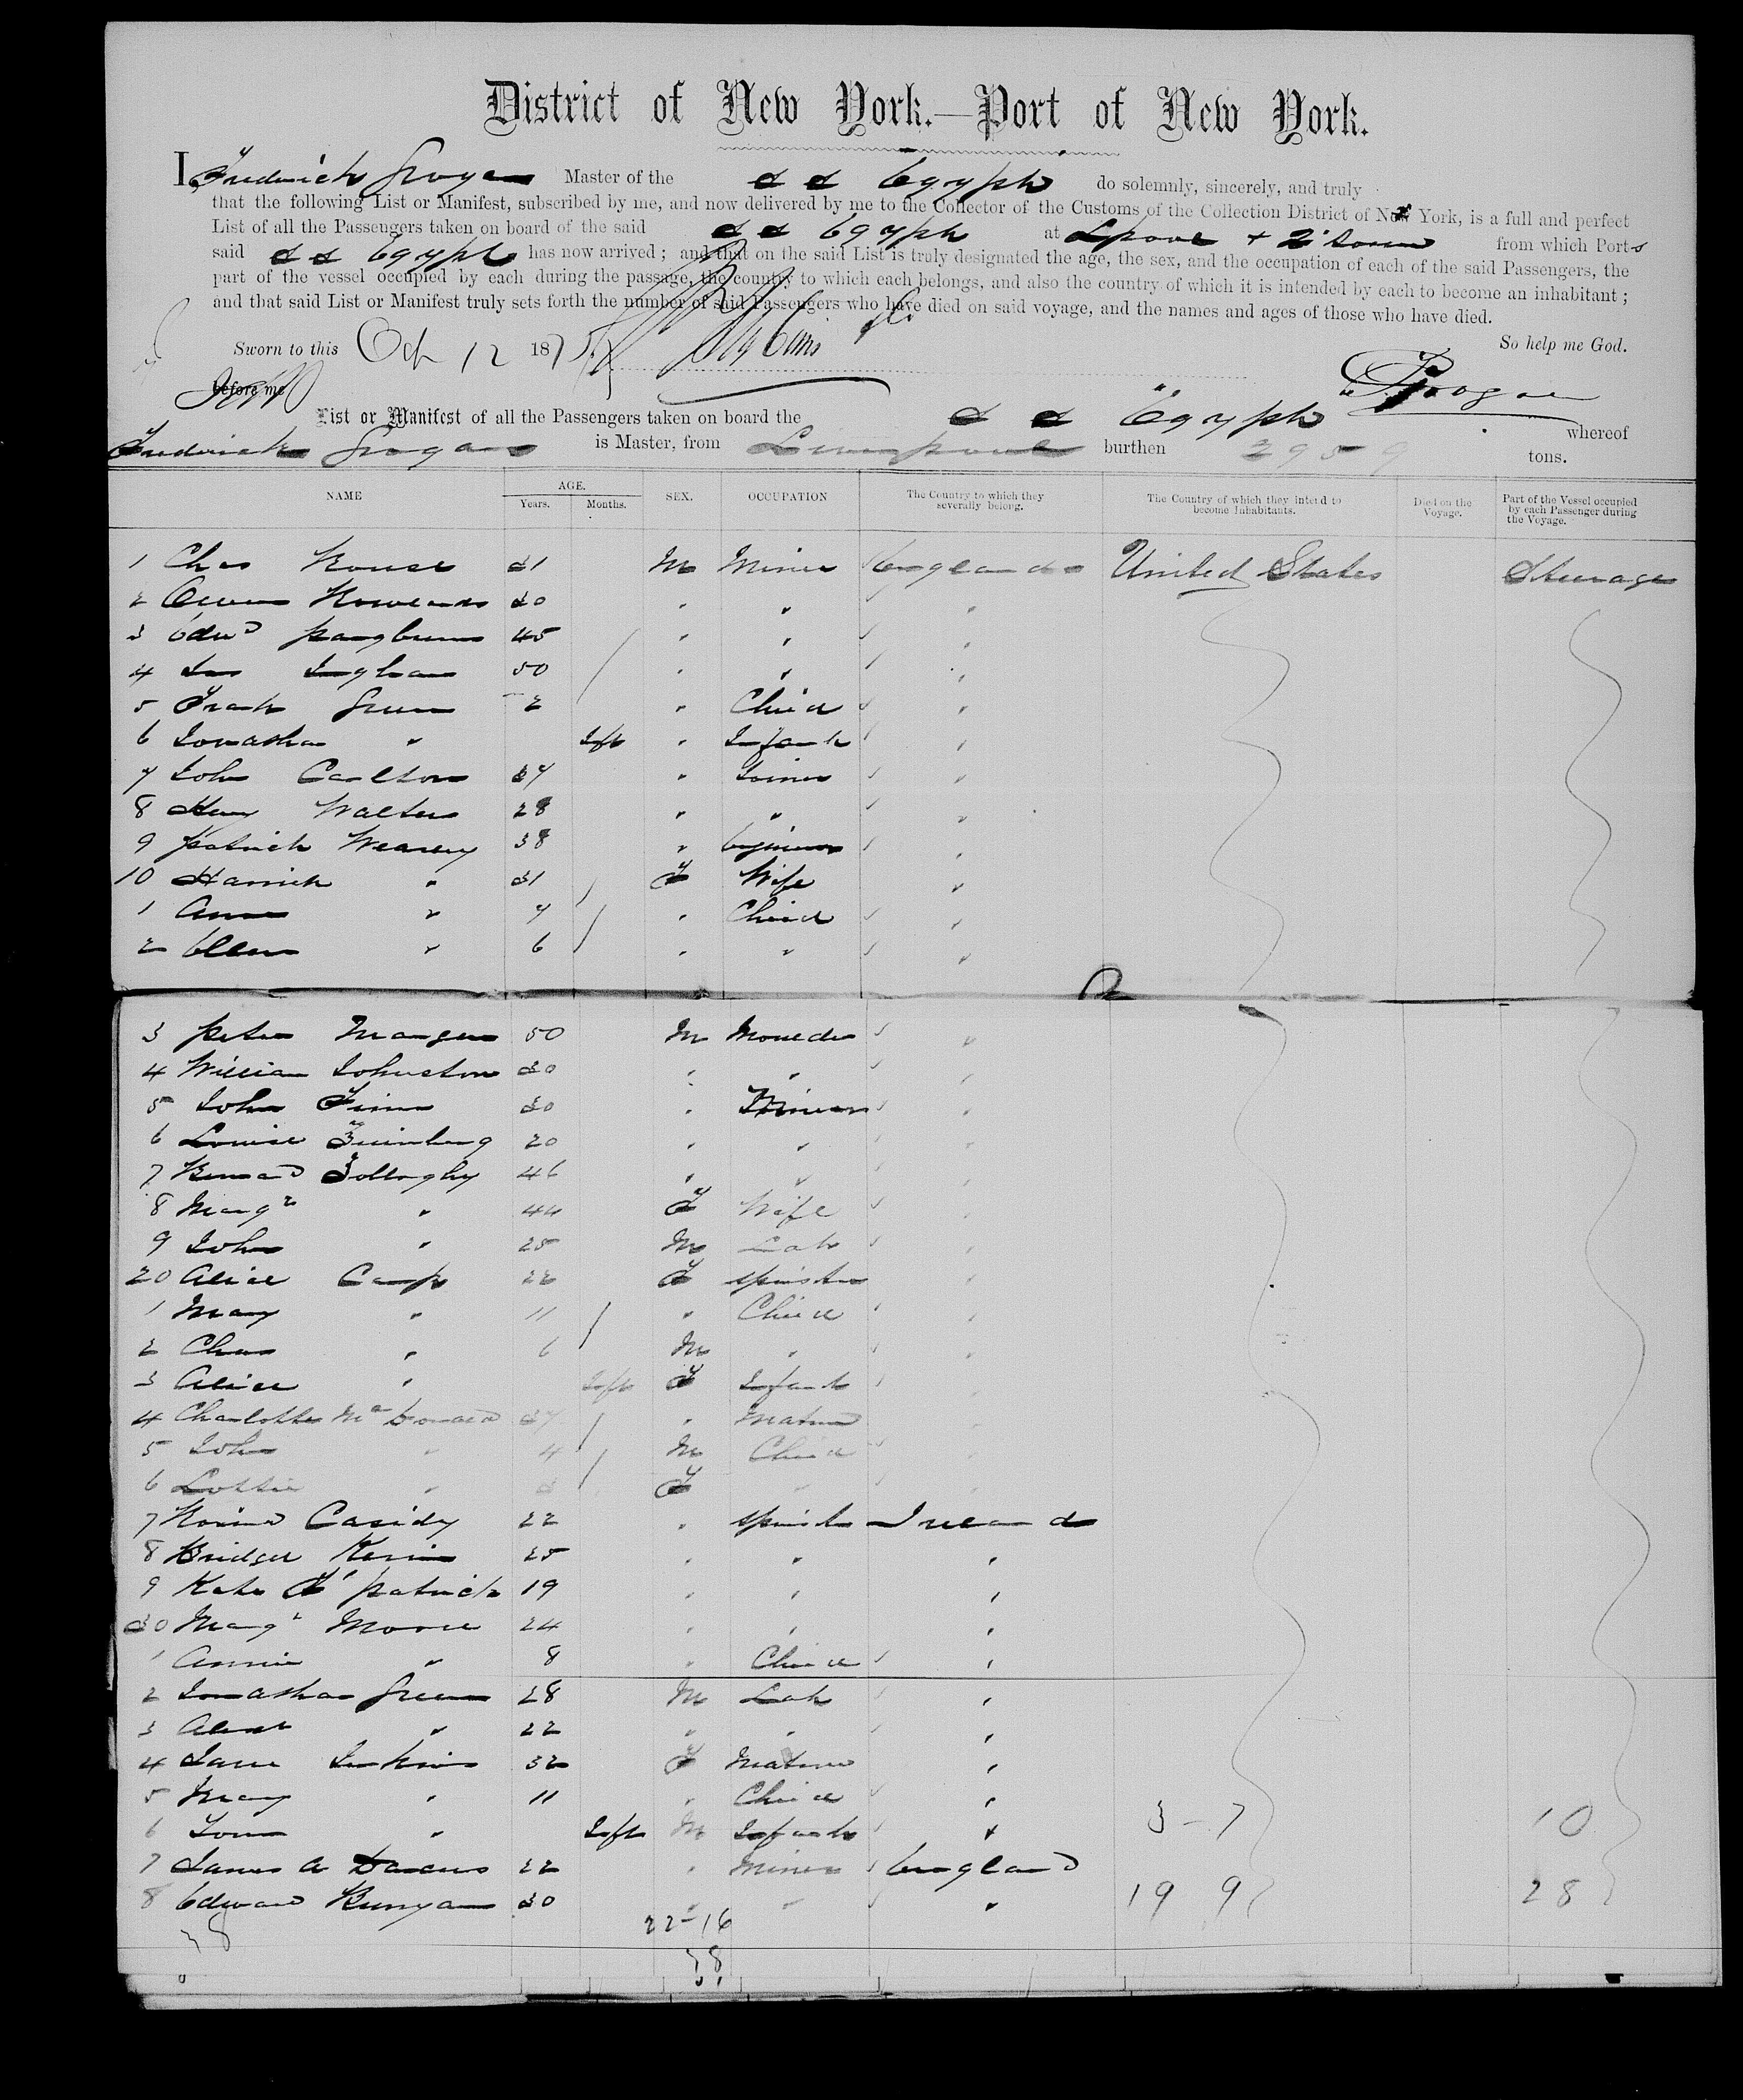 District of New York.—Port of New York.
I, Frederick Grogan Master of the S S Egypt do solemnly, sincerely, and truly
that the following List or Manifest, subscribed by me, and now delivered by me to the Collector of the Customs of the Collection District of New York, is a full and perfect
List of all the Passengers taken on board of the said S S Egypt at Lpool + Q'town from which Ports
said S S Egypt has now arrived; and that on the said List is truly designated the age, the sex, and the occupation of each of the said Passengers, the
part of the vessel occupied by each during the passage, the country to which each belongs, and also the country of which it is intended by each to become an inhabitant;
and that said List or Manifest truly sets forth the number of said Passengers who have died on said voyage, and the names and ages of those who have died.
Sworn to this Oct 12 1875 So help me God.
before me Grogan
List or Manifest of all the Passengers taken on board the S S Egypt whereof
Frederick Grogan is Master, from Liverpool burthen 2959 tons.
NAME AGE. Years. Months. SEX. OCCUPATION The Country to which they severally belong. The Country of which they intend to become Inhabitants. Died on the Voyage. Part of the Vessel occupied by each Passenger during the Voyage.
1 Chas Rouse 31 M Miner England United States Steerage
2 Owen Rowlands 30 " " "
3 Edwd Pangburn 45 " " "
4 Jas Ingham 50 " " "
5 Frank Green 2 " Child "
6 Jonathan " Inft " Infant "
7 John Carlton 37 " Joiner "
8 Henry Walters 28 " " "
9 Patrick Weavery 38 " Engineer "
10 Harriet " 31 F Wife "
1 Anne " 7 " Child "
2 Ellen " 6 " " "
3 Peter Mangen 50 M Moulder "
4 William Johnston 30 " " "
5 John Finn 30 " Miner "
6 Louise 20 " " "
7 Bernard 46 " " "
8 Margt " 44 F Wife "
9 John " 25 M Lab "
20 Alice Camp 22 F Spinster "
1 Mary " 11 " Child "
2 Chas " 6 M " "
3 Alice " Inft F Infant "
4 Charlotte McDonald 37 " Matron "
5 John " 4 M Child "
6 Lottie " 3 F " "
7 Casidy 22 " Spinster Ireland
8 Bridget Kerin 25 " " "
9 Kate F'patrick 19 " " "
30 Margt Moore 24 " " "
1 Annie " 8 " Child "
2 Jonathan Green 28 M Lab "
3 " 22 " " "
4 Jane Jenkins 32 F Matron "
5 Mary " 11 " Child "
6 Tom " Inft M Infant " 3-7 10
7 James A 22 " Miner England
8 Edward Bunyan 30 " " " 19 9 28
38 22-16
38